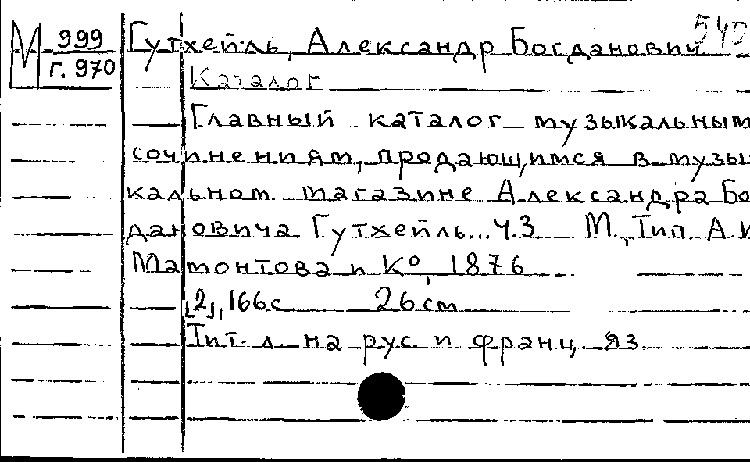 М 999 Гутхейль, Александр Богданович 542
Г. 970 Каталог
Главный каталог музыкальным
сочинениям, продающимся в музы
кальном магазине Александра Бо
дановича Гутхейль... Ч.3 М., Тип. А.И
Мамонтова и К°, 1876
[2], 166с 26 см
Тит. л. на рус. и франц. яз.